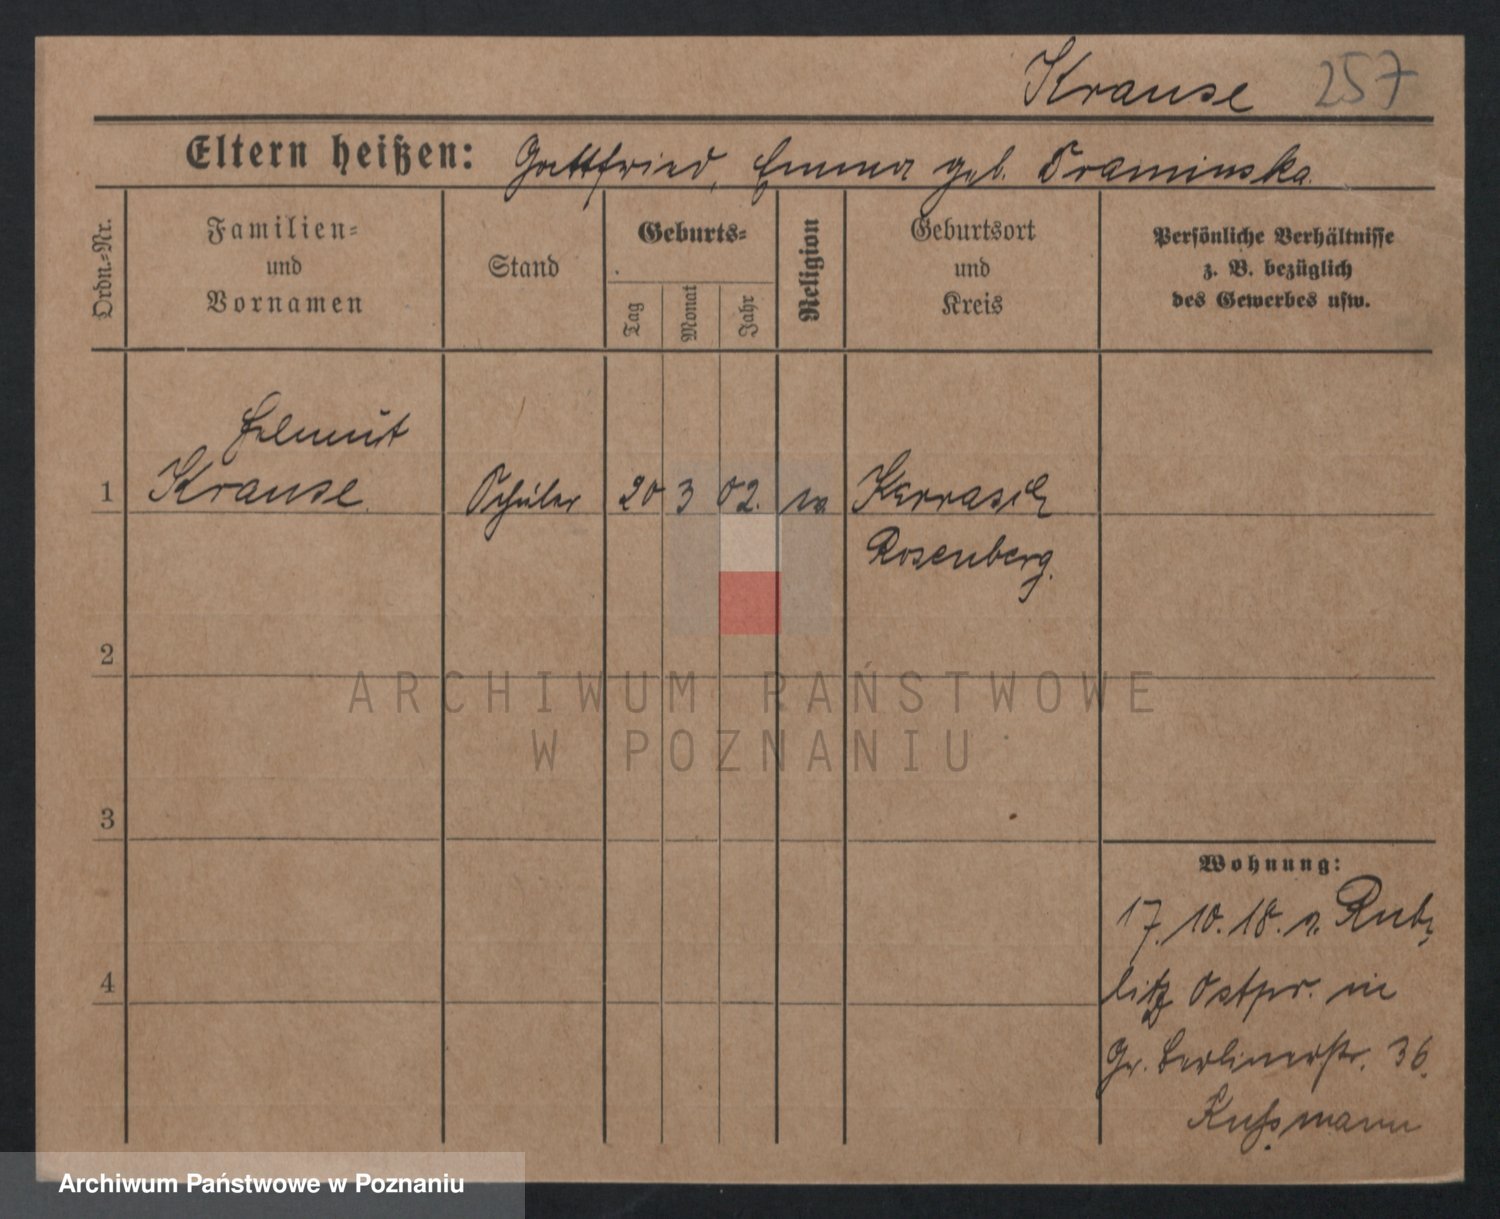 Krause 257
Eltern heißen: Gottfried, Emma geb. Draminska.
Ordn.-Nr.
Familien-
und
Vornamen
Stand
Geburts-
Tag
Monat
Jahr
Religion
Geburtsort
und
Kreis
Persönliche Verhältnisse
z. B. bezüglich
des Gewerbes usw.
Helmut
1 Krause Schüler 20 3 02. ev.
Rosenberg.
2
ARCHIWUM PAŃSTWOWE
W POZNANIU
3
Wohnung:
17.10.18. v.
4
Ostpr. in
Gr. Berlinerstr. 36.
Kußmann
Archiwum Państwowe w Poznaniu